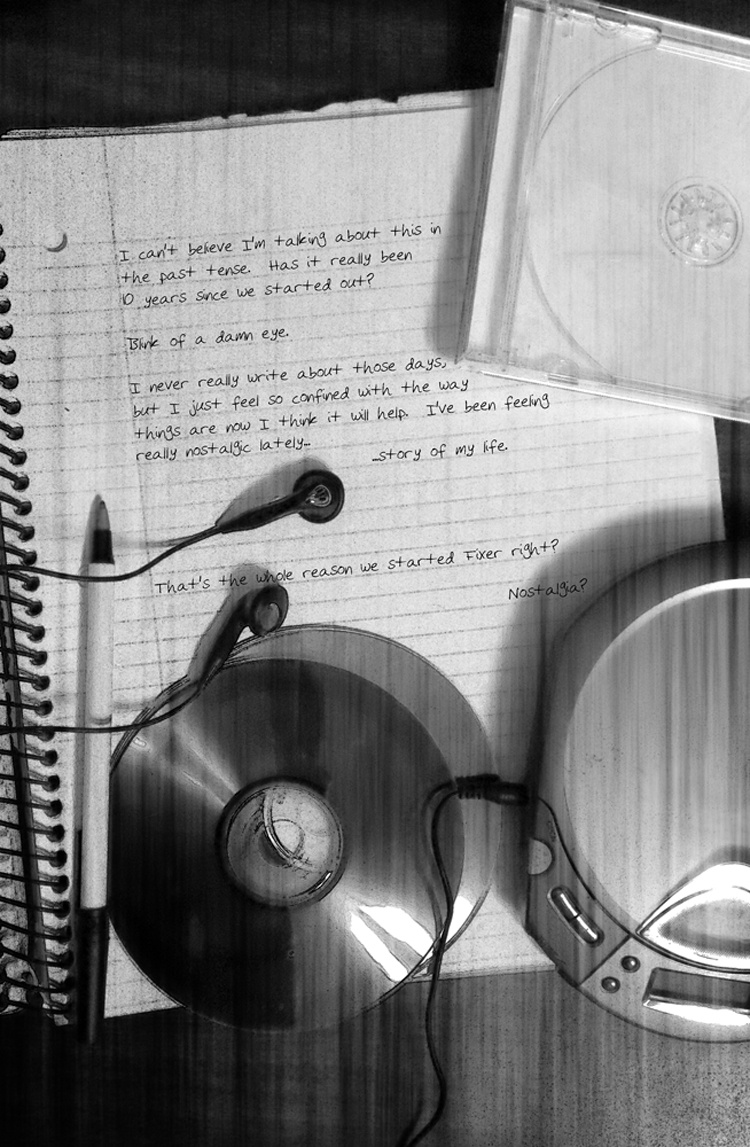 I can't believe I'm talking about this in
the past tense. Has it really been
10 years since we started out?
Blink of a damn eye.
I never really write about those days,
but I just feel so confined with the way
things are now I think it will help. I've been feeling
really nostalgic lately...
...story of my life.
That's the whole reason we started Fixer right?
Nostalgia?